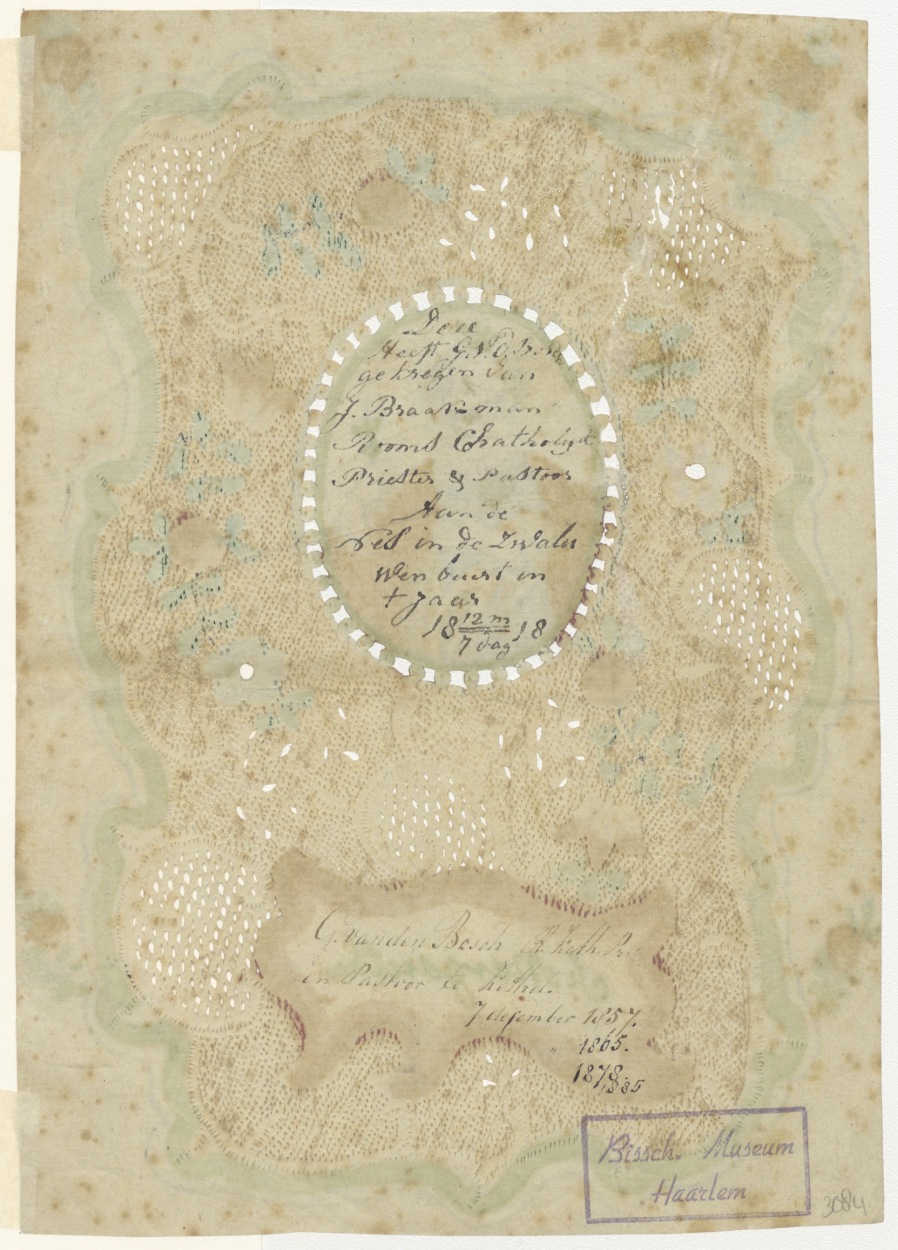 Dese
Heeft G. V. D. Bosch
gekregen van
J. Braakman
Rooms Chatholyk
Priester & Pastoor
Aan de
Nes in de Zwalu
Wen buurt in
+ jaar
18 12 m 18
7 dag
G. van den Bosch R. Kath. Pr.
en Pastoor te Kethel.
7 desember 1857.
" 1865.
1878
1885
Bissch. Museum
Haarlem
3084